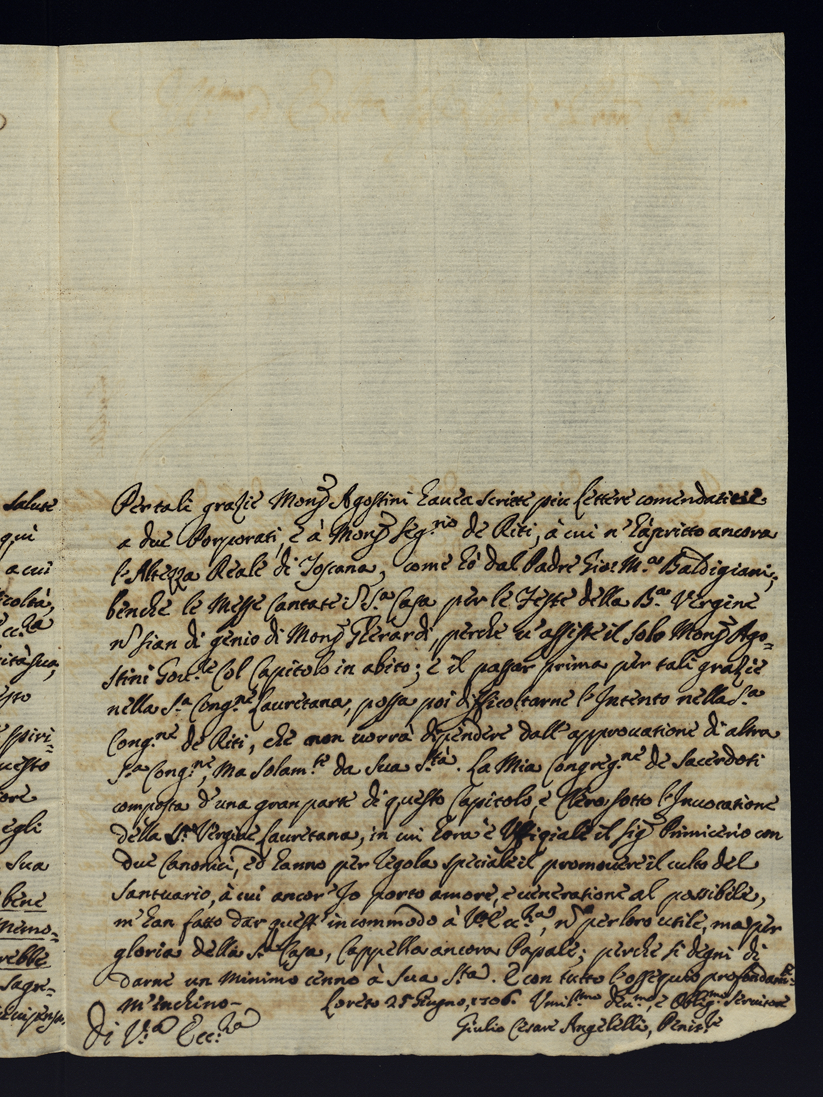 Per tali grazie Mons.r Agostini havea scritte piu lettere comendatizie
a due Porporati, e à Mons.r Seg.rio de Riti, à cui n'hà scritto ancora
l'Altezza Reale di Toscana, come hò dal Padre Gio: M.a Baldigiani;
benche le Messe Cantate S.ta Casa per le Feste della B.a Vergine
nõ sian di genio di Mons.r Gherardi, perche v'assiste il solo Mons.r Ago-
stini Gov.re Col Capitolo in abito; e il passar prima per tali grazie
nella S.a Cong.ne Lauretana, possa poi difficoltarne l'Intento nella S.a
Cong.ne de Riti, che non vorrà dipendere dall'approvatione di altra
S.a Cong.ne, Ma solam.te da Sua S.tà. La Mia Congreg.ne de Sacerdoti
composta d'una gran parte di questo Capitolo, e Clero sotto l'Invocatione
della S.ma Vergine Lauretana, in cui hora è Uffigiale il Sig.r Primicerio con
due Canonici, ed hanno per regola speciale il promovere il culto del
Santuario, à cui ancor'Io porto amore, e veneratione al possibile,
m'han fatto dar quest'incommodo à V.E., nõ per loro utile, ma per
gloria della S.ta Casa, Cappella ancora Papale; perche si degni di
darne un Minimo cenno à Sua S.tà. E con tutto l'ossequio profondam.te
M'inchino-
Loreto 25 Giugno, 1706. Umil.mo Dev.mo, e Oblig.mo Servitore
Di V.ra Ecc.za
Giulio Cesare Angelelli, Penit.re
Salute
qui
a cui
icoltà,
ità sua,
Spiri-
uesto
egli
Sua
bene
Memo-
rebbe
Sagre-